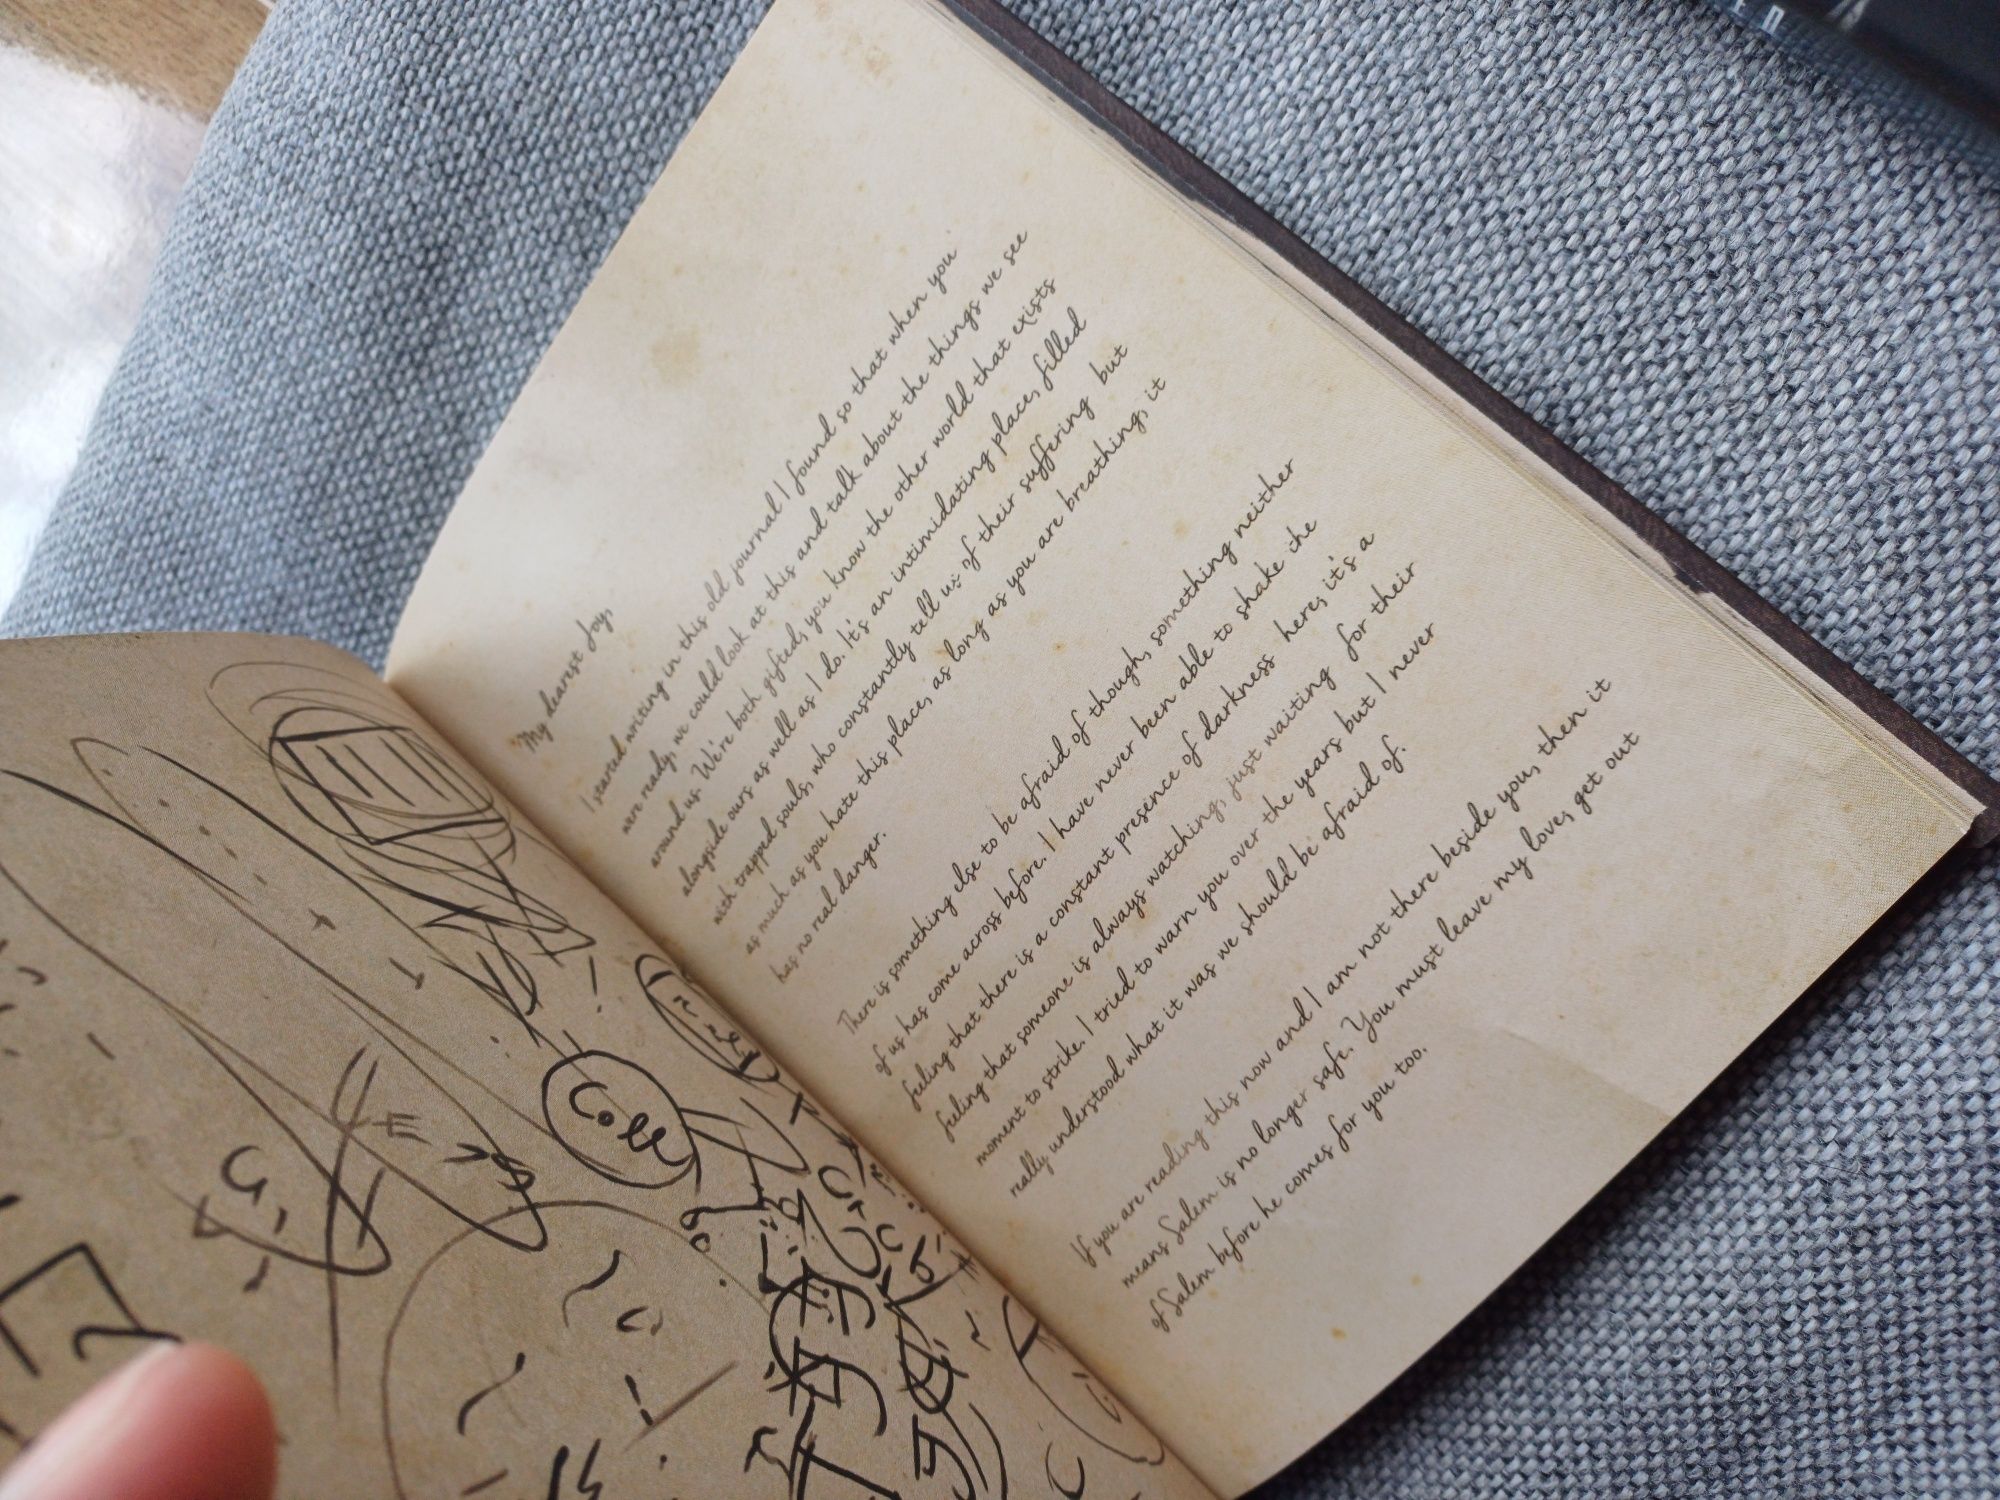 My dearest Joy,
I started writing in this old journal I found so that when you
were ready, we could look at this and talk about the things we see
around us. We're both gifted, you know the other world that exists
alongside ours as well as I do. It's an intimidating place, filled
with trapped souls, who constantly tell us of their suffering but
as much as you hate this place, as long as you are breathing, it
has no real danger.
There is something else to be afraid of though, something neither
of us has come across before. I have never been able to shake the
feeling that there is a constant presence of darkness here, it's a
feeling that someone is always watching, just waiting for their
moment to strike. I tried to warn you over the years but I never
really understood what it was we should be afraid of.
If you are reading this now and I am not there beside you, then it
means Salem is no longer safe. You must leave my love, get out
of Salem before he comes for you too.